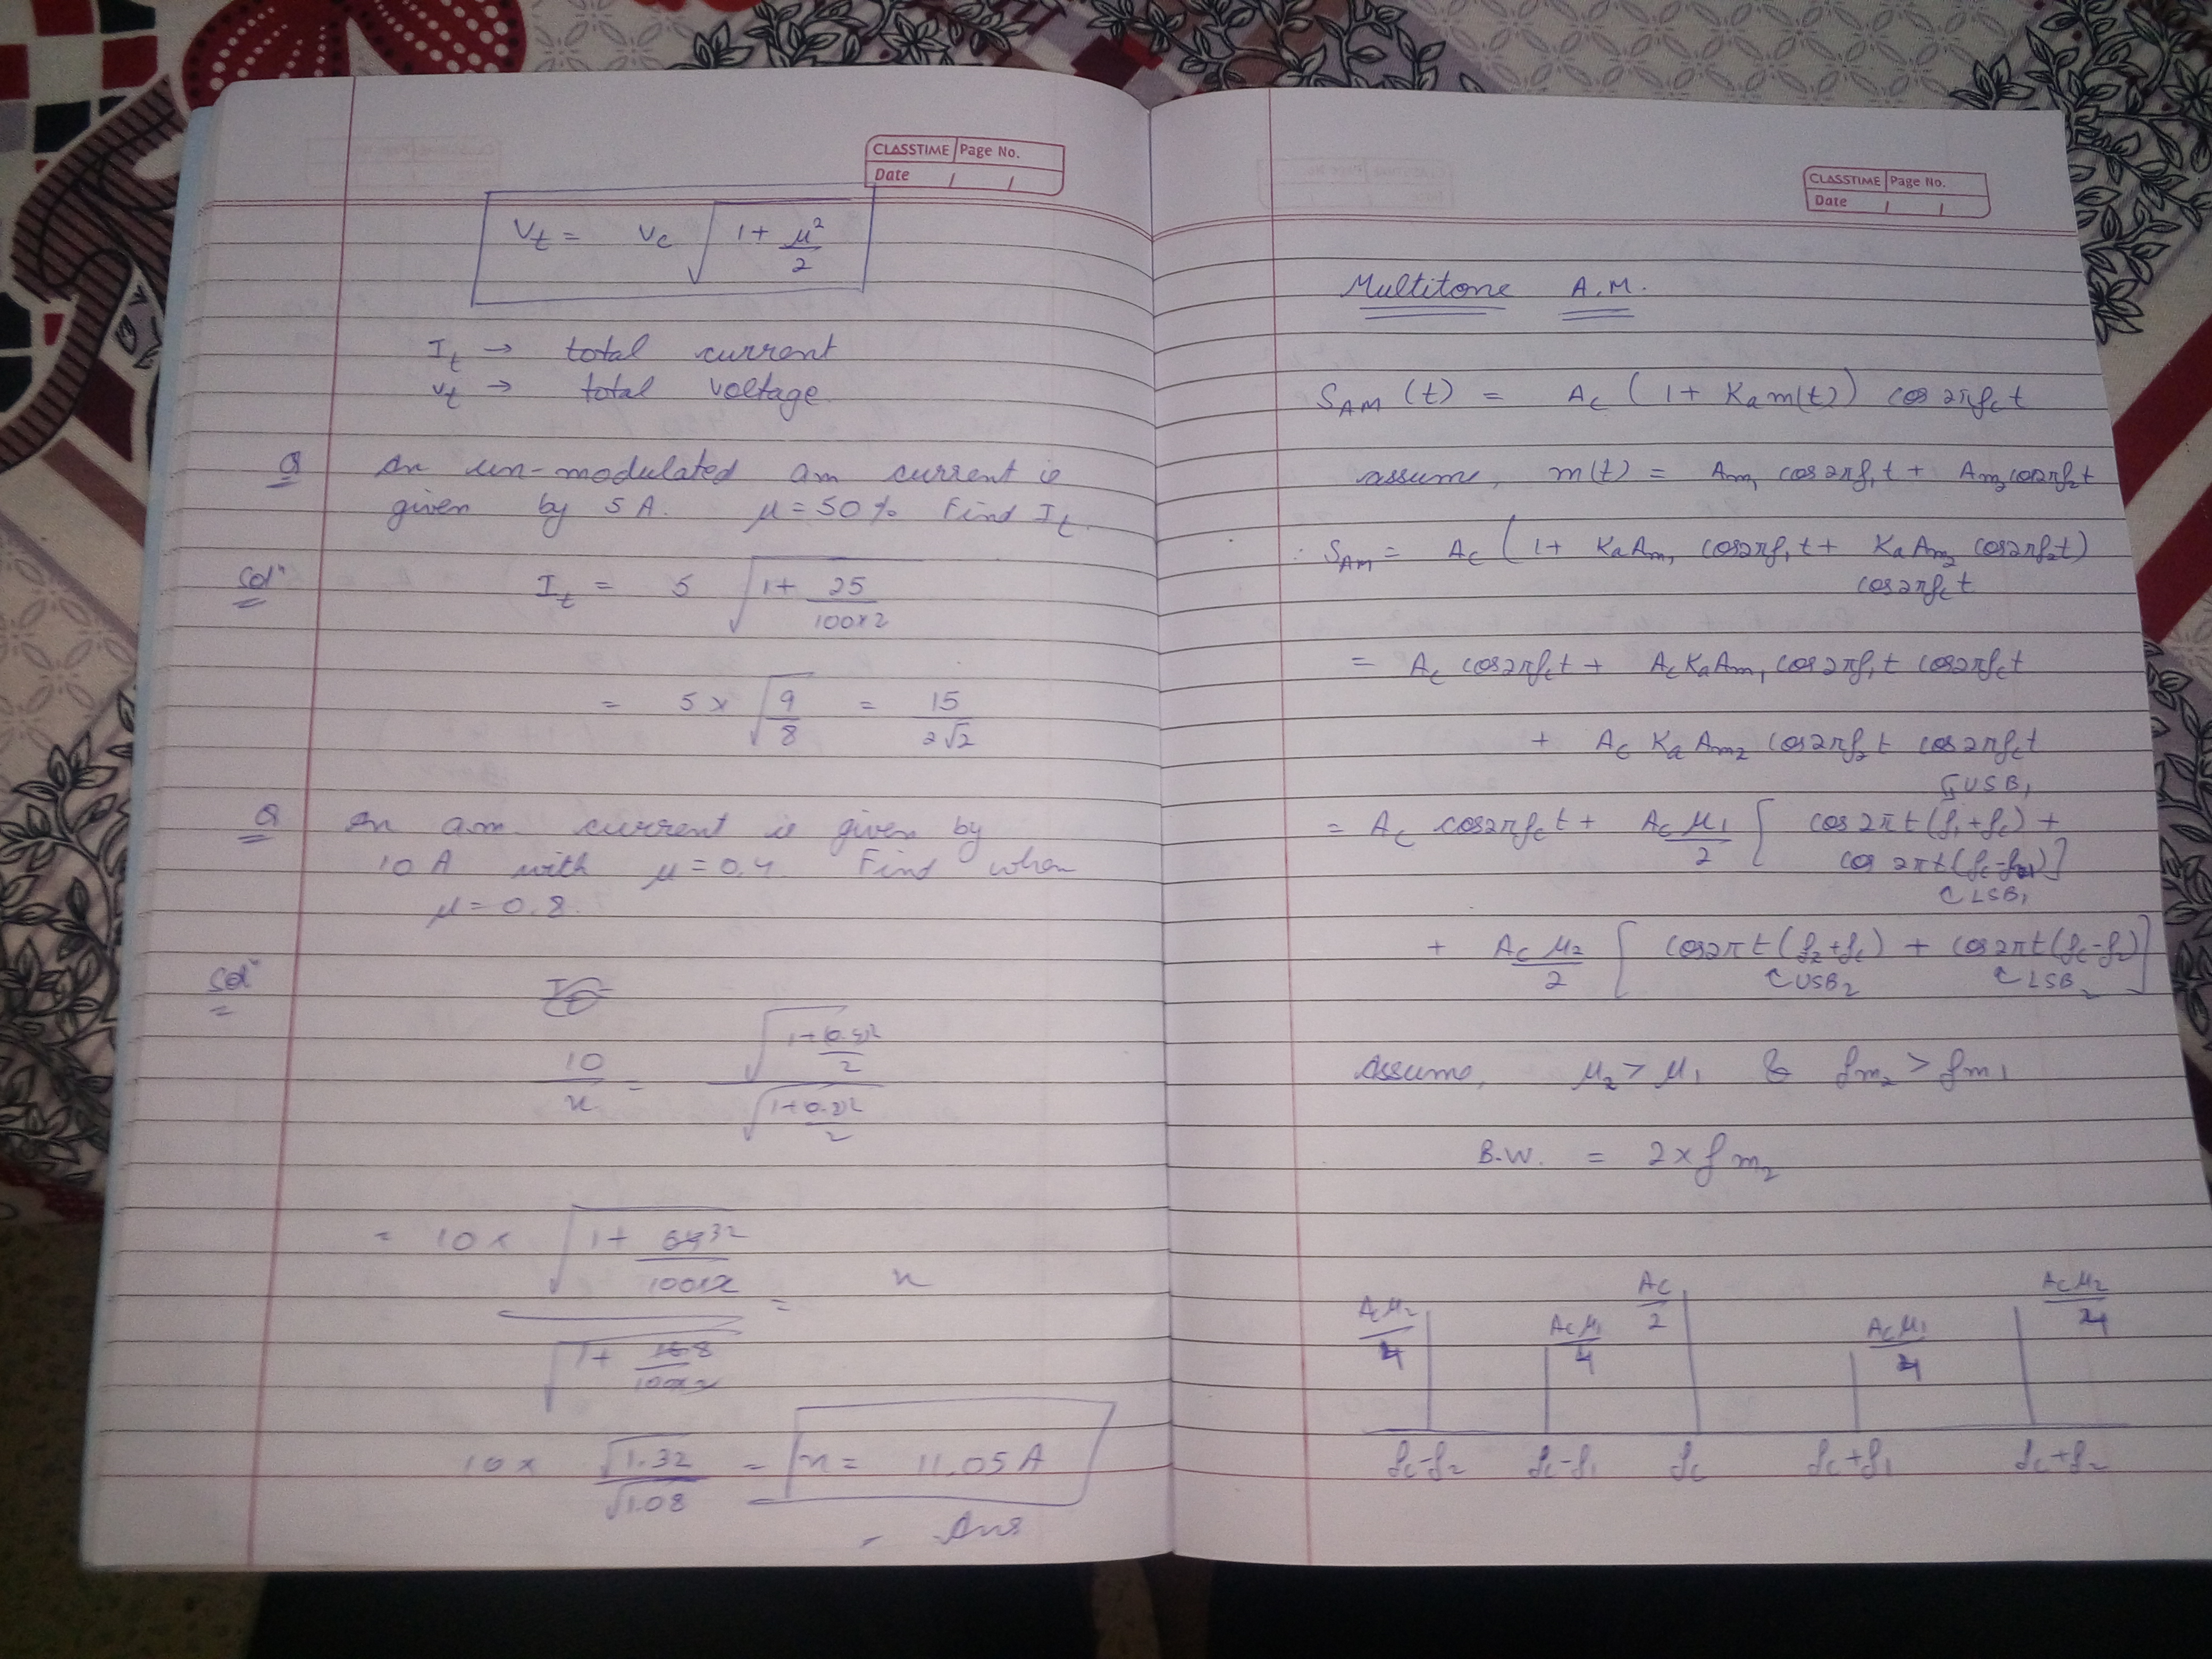 CLASSTIME Page No.
Date / /
V_t = V_c √(1 + μ²/2)
I_t → total current
V_t → total voltage
Q An un-modulated am current is
given by 5 A. μ = 50% Find I_t.
Solⁿ I_t = 5 √(1 + 25/(100×2))
= 5 × √(9/8) = 15/(2√2)
Q An am current is given by
10 A with μ = 0.4 Find when
μ = 0.8.
Solⁿ
10/x = √(1 + (0.4)²/2) / √(1 + (0.8)²/2)
= 10 × √(1 + 64 32/(100×2)) / √(1 + 16 8/(100×2)) = x
10 × √1.32/√1.08 = x = 11.05 A
Ans
CLASSTIME Page No.
Date / /
Multitone A.M.
S_AM (t) = A_c (1 + K_a m(t)) cos 2πf_c t
assume, m(t) = A_m₁ cos 2πf₁t + A_m₂ cos 2πf₂t
∴ S_AM = A_c (1 + K_a A_m₁ cos 2πf₁t + K_a A_m₂ cos 2πf₂t)
cos 2πf_c t
= A_c cos 2πf_c t + A_c K_a A_m₁ cos 2πf₁t cos 2πf_c t
+ A_c K_a A_m₂ cos 2πf₂t cos 2πf_c t
↳ USB₁
= A_c cos 2πf_c t + A_c μ₁/2 [cos 2πt(f₁+f_c) +
cos 2πt(f_c-f₁)]
↳ LSB₁
+ A_c μ₂/2 [cos 2πt(f₂+f_c) + cos 2πt(f_c-f₂)]
↳ USB₂ ↳ LSB₂
Assume, μ₂ > μ₁ & f_m₂ > f_m₁
B.W. = 2 × f_m₂
A_c μ₂/4 A_c μ₁/4 A_c/2 A_c μ₁/4 A_c μ₂/4
f_c-f₂ f_c-f₁ f_c f_c+f₁ f_c+f₂